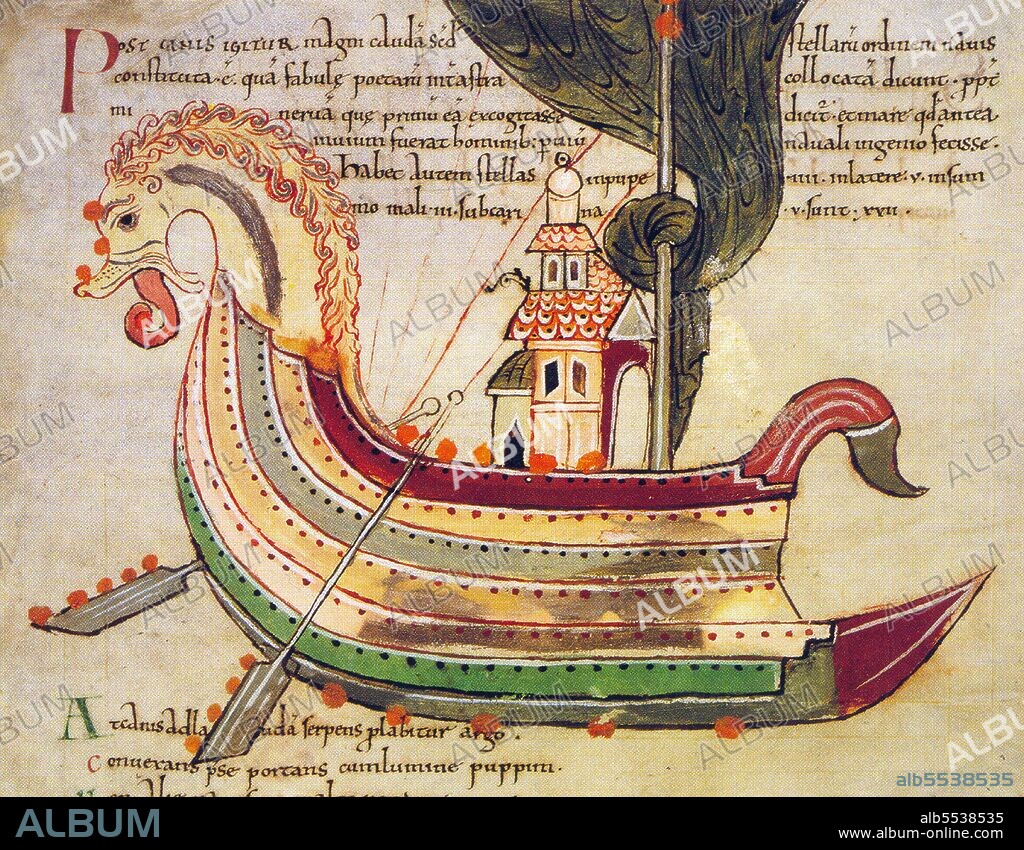 Post canis igitur magni caudā sēd stellarū ordinem nauis
constituta · ē · quā fabulę poetarū int astra collocatā dicunt · ppt
mi nerua que primū eā excogitasse dicit · et mare qd antea
inuium fuerat hominib; puiū nauali ingenio fecisse ·
Habet autem stellas inpupe ·IIII· inlatere ·V· insum
mo mali ·III· subcari na ·V· sunt: XXII ·
At canis ad caudā serpens plabitur argo ·
Conuexans pse portans cumlumine puppim ·
ALBUM
alb5538535
ALBUM
alb5538535
www.album-online.com